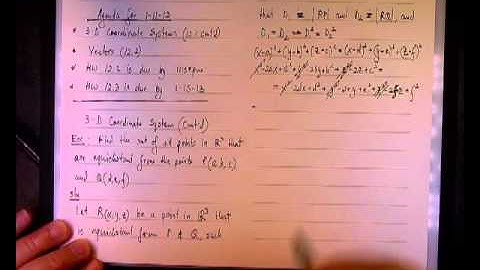 Agenda for 1-11-12
3-D Coordinate Systems (12.1 cont'd)
Vectors (12.2)
HW 12.1 is due by 11:59pm
HW 12.2 is due by 1-15-12
3-D Coordinate System (cont'd)
Ex: Find the set of all points in R³ that
are equidistant from the points P(a,b,c)
and Q(d,e,f)
Let R(x,y,z) be a point in R³ that
is equidistant from P & Q, such
that D₁ = |RP| and D₂ = |RQ|, and
D₁ = D₂ ⇒ D₁² = D₂²
(x-a)²+(y-b)²+(z-c)²=(x-d)²+(y-e)²+(z-f)²